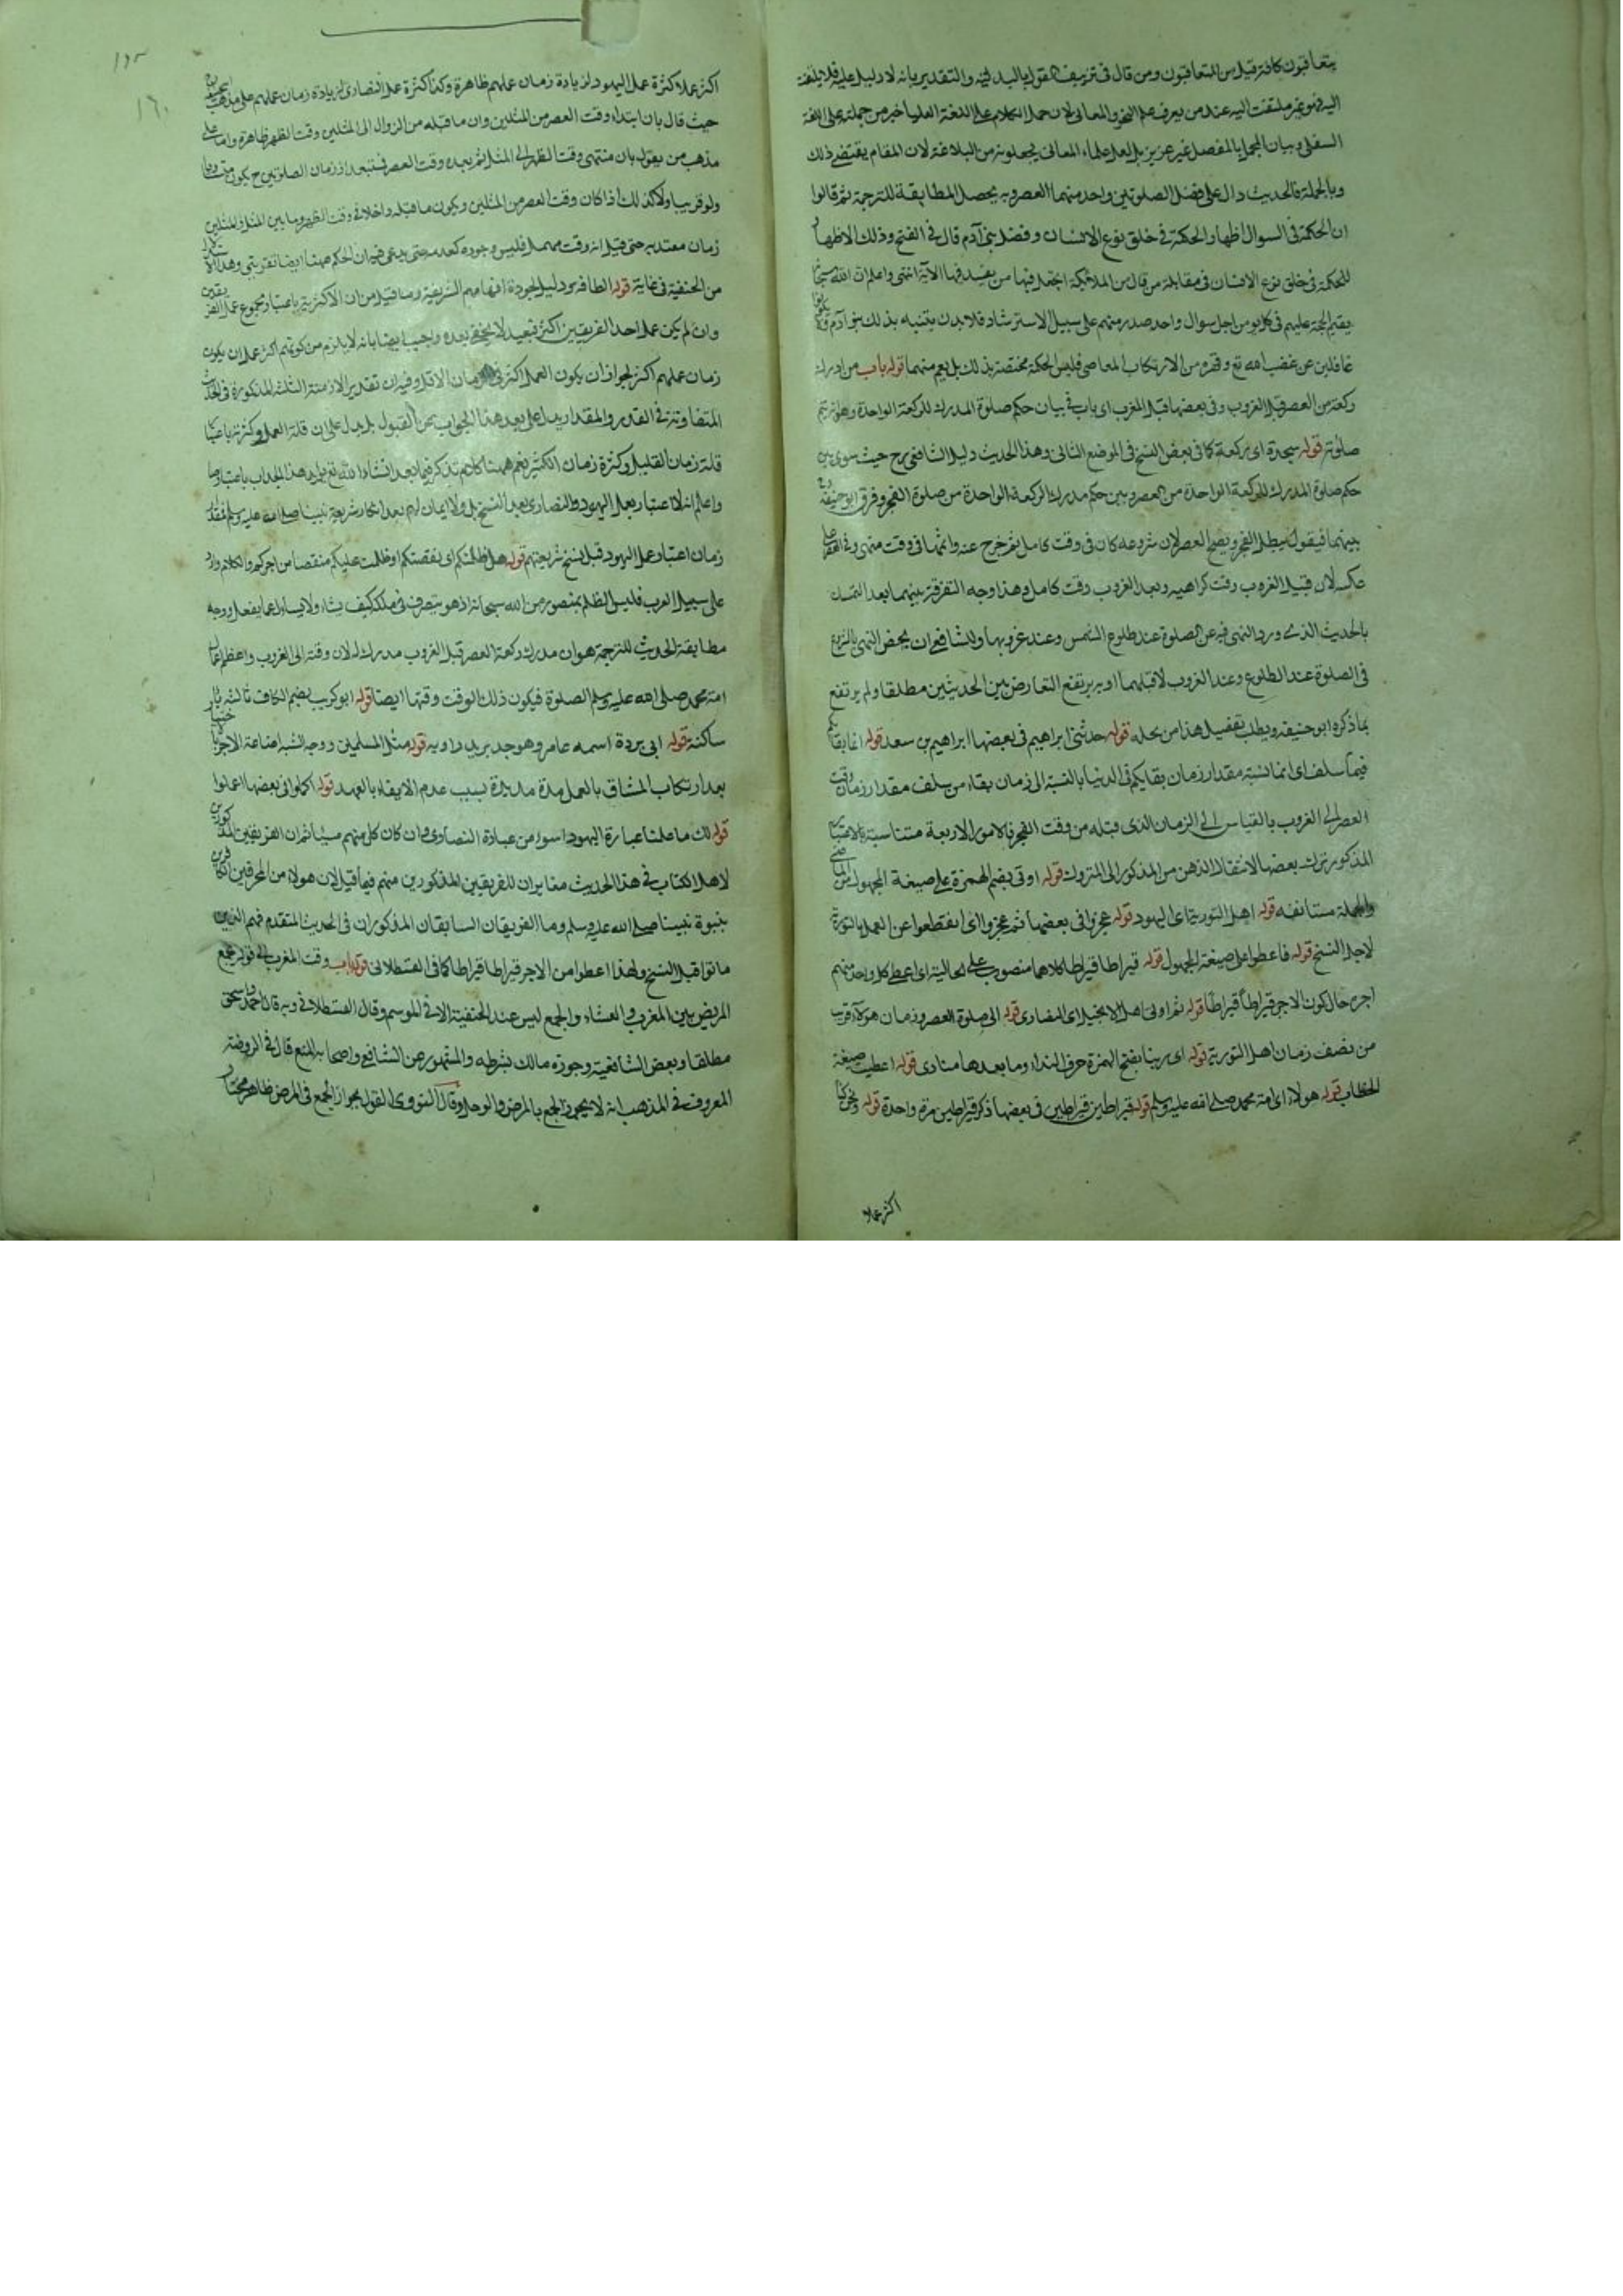 يتعاقبون كانه قيل من المتعاقبون ومن قال في تزييف القول بالبدلية والتقدير بانه لا دليل عليه فلا يلتفت
اليه فهو غير ملتفت اليه عند من يعرف علم النحو والمعاني لان حمل الكلام على اللغة العليا خير من حمله على اللغة
السفلى وبيان المجمل بالمفصل غير عزيز بل لعل علماء المعاني يجعلونه من البلاغة لان المقام يقتضي ذلك
وبالجملة فالحديث دال على فضل الصلوتين واحد منهما العصر وبه يحصل المطابقة للترجمة ثم قالوا
ان الحكمة في السوال اظهار الحكمة في خلق نوع الانسان وفضل بني آدم قال في الفتح وذلك الاظهار
للحكمة في خلق نوع الانسان في مقابلة من قال من الملائكة اتجعل فيها من يفسد فيها الآية انتهى واعلم ان الله سبحانه
يقيم الحجة عليهم في كل يوم من اجل سوال واحد صدر منهم على سبيل الاسترشاد فلا بد ان يتنبه بذلك بنو آدم ولا يكونوا
غافلين عن غضب الله تع وقهره من الارتكاب المعاصي فليس الحكمة مختصة بذلك بل يعم منهما قوله باب من ادرك
ركعة من العصر قبل الغروب وفي بعضها قبل المغرب اي باب في بيان حكم صلوة المدرك للركعة الواحدة وهل يتم
صلوته قوله سجدة اي ركعة كما في بعض النسخ في الموضع الثاني وهذا الحديث دليل الشافعي رح حيث سوى بين
حكم صلوة المدرك للركعة الواحدة من العصر وبين حكم مدرك الركعة الواحدة من صلوة الفجر وفرق ابو حنيفة رح
بينهما فيقول يبطل الفجر ويصح العصر لان شروعه كان في وقت كامل ثم خرج عنه واتمها في وقت منهي وفي الفجر على
عكسه لان قبيل الغروب وقت كراهية وبعد الغروب وقت كامل وهذا وجه التفرقة بينهما بعد التمسك
بالحديث الذي ورد النهي فيه عن الصلوة عند طلوع الشمس وعند غروبها وللشافعي ان يخص النهي بالشروع
في الصلوة عند الطلوع وعند الغروب لا قبلهما اوبه يرتفع التعارض بين الحديثين مطلقا ولم يرتفع
بما ذكره ابو حنيفة ويطلب تفصيل هذا من محله قوله حدثني ابراهيم في بعضها ابراهيم بن سعد قوله انما بقاؤكم
فيما سلف اي انما نسبة مقدار زمان بقايكم في الدنيا بالنسبة الى زمان بقاء من سلف مقدار زمان وقت
العصر الى الغروب بالقياس الى الزمان الذي قبله من وقت الفجر فالامور الاربعة متناسبة بالاعتبار
المذكور ترك بعضها لانتقال الذهن من المذكور الى المتروك قوله اوتي بضم الهمزة على صيغة المجهول من الماضي
والجملة مستانفة قوله اهل التورية اي اليهود قوله عجزوا في بعضها ثم عجزوا اي انقطعوا عن العمل بالتورية
لاجل النسخ قوله فاعطوا على صيغة المجهول قوله قيراطا قيراطا كلاهما منصوب على الحالية اي اعطي كل واحد منهم
اجره حال كون الاجر قيراطا قيراطا قوله ثم اوتي اهل الانجيل اي النصارى قوله الى صلوة العصر وزمان هؤلاء قريب
من نصف زمان اهل التورية قوله اي ربنا بفتح الهمزة حرف النداء وما بعدها منادى قوله اعطيت صيغة
الخطاب قوله هولاء اي امة محمد صلى الله عليه وسلم قوله قيراطين قيراطين في بعضها ذكر قيراطين مرة واحدة قوله ونحن كنا
اكثر عملا
اكثر عملا كثرة عمل اليهود لزيادة زمان عملهم ظاهرة وكذا كثرة عمل النصارى لزيادة زمان عملهم على مذهب ابي حنيفة
حيث قال بان ابتداء وقت العصر من المثلين وان ما قبله من الزوال الى المثلين وقت الظهر ظاهرة واما على
مذهب من يقول بان منتهى وقت الظهر الى المثل ثم بعده وقت العصر فتبعد اذ زمان الصلوتين ح يكون متساويا
ولو قريبا ولا كذلك اذا كان وقت العصر من المثلين ويكون ما قبله داخلا في وقت الظهر وما بين المثل والمثلين
زمان معتد به حتى قيل انه وقت مهمل فليس وجوده كعدمه حتى يدعى فيه ان الحكم ههنا ايضا تقريبي وهذا
من الحنفية في غاية قوله الطافة ودليل لجودة افهامهم الشريفة وما قيل من ان الاكثرية باعتبار مجموع عمل الفريقين
وان لم يكن عمل احد الفريقين اكثر فبعيد لا يخفى بعده واجيب ايضا بانه لا يلزم من كونهم اكثر عملا ان يكون
زمان عملهم اكثر لجواز ان يكون العمل اكثر في الزمان الاقل وفيه ان تقدير الازمنة الثلثة المذكورة في الحديث
المتفاوتة في القدر والمقدار يدل على بعد هذا الجواب عن القبول بل يدل على ان قلة العمل وكثرته باعتبار
قلة زمان القليل وكثرة زمان الكثير نعم ههنا كلام نذكر فيما بعد انشاء الله تع
واعلم انه لا اعتبار بعمل اليهود والنصارى بعد النسخ بل ولا ايمان لهم بعد انكار شريعة نبينا صلى الله عليه وسلم
زمان اعتبار عمل اليهود قبل نسخ شريعتهم قوله هل ظلمتكم اي نقصتكم او ظلمت عليكم منقصا من اجركم والكلام وارد
على سبيل العرب فليس الظلم بمتصور من الله سبحانه اذ هو يتصرف في ملكه كيف يشاء ولا يسئل عما يفعل ووجه
مطابقة الحديث للترجمة هو ان مدرك ركعة العصر قبل الغروب مدرك له لان وقته الى الغروب واعظم اعمال
امة محمد صلى الله عليه وسلم الصلوة فيكون ذلك الوقت وقتها ايضا قوله ابو كريب بضم الكاف ثالثه ياء
ساكنة قوله ابي بردة اسمه عامر وهو جد بريد راويه قوله مثل المسلمين ووجه الشبه اضاعة الاجر
بعد ارتكاب المشاق بالعمل مدة مديدة بسبب عدم الايفاء بالعهد قوله اكملوا في بعضها اعملوا
قوله لك ما عملنا عبارة اليهود اسوء من عبارة النصارى وان كان كل منهم مسيئا ثم ان الفريقين المذكورين
لاهل الكتاب في هذا الحديث مغايران للفريقين المذكورين منهم فيما قيل لان هولاء من المحرفين الكافرين
بنبوة نبينا صلى الله عليه وسلم وما الفريقان السابقان المذكوران في الحديث المتقدم فهم الذين
ماتوا قبل النسخ ولهذا اعطوا من الاجر قيراطا قيراطا كما في القسطلاني قوله باب وقت المغرب الى قوله يجمع
المريض بين المغرب والعشاء والجمع ليس عند الحنفية الا في الموسم وقال القسطلاني وبه قال احمد واسحق
مطلقا وبعض الشافعية وجوزه مالك بشرطه والمشهور عن الشافعي واصحابه المنع قال في الروضة
المعروف في المذهب انه لا يجوز الجمع بالمرض والوحل وقال النووي القول بجواز الجمع في المرض ظاهر مختار